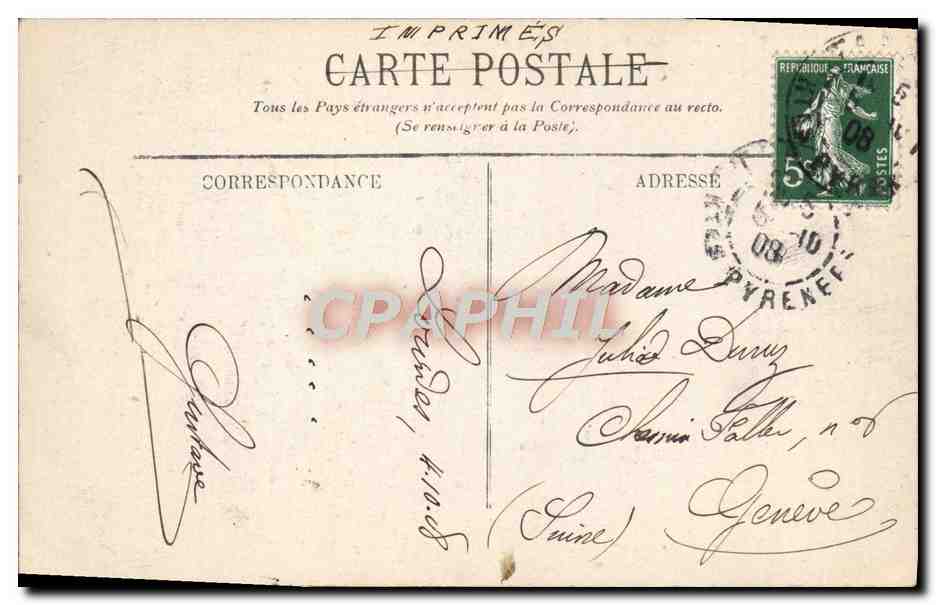 IMPRIMÉS
CARTE POSTALE
Tous les Pays étrangers n'acceptent pas la Correspondance au recto.
(Se renseigner à la Poste).
REPUBLIQUE FRANÇAISE
5c
POSTES
08
CORRESPONDANCE
ADRESSE
5 10
08
PYRENEES
CPAPHIL
Gustave
Lourdes, 4.10.08
Madame
Julia Duruz
Chemin n° 6
Genève
(Suisse)